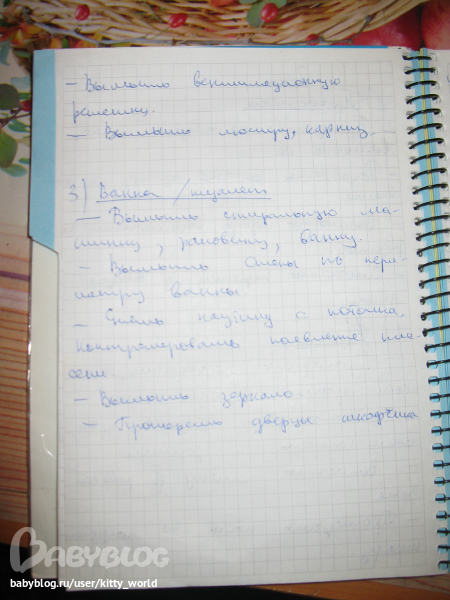 - Вымыть вентиляционную
решетку.
- Вымыть люстру, карниз
3) Ванна / туалет
- Вымыть стиральную ма-
шинку, раковину, ванну.
- Вымыть стены по пери-
метру ванны
- Снять паутину с потолка,
контролировать появление пле-
сени.
- Вымыть зеркало.
- Протереть дверцы шкафчика
BABYBLOG
babyblog.ru/user/kitty_world